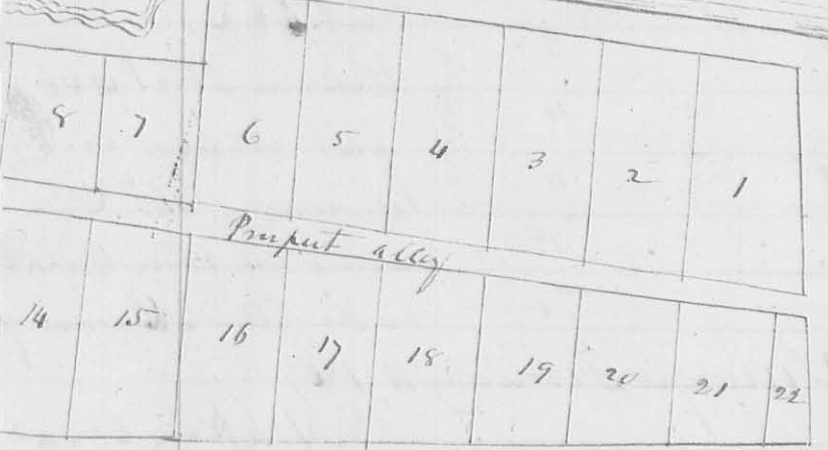 8 7 6 5 4 3 2 1
Prospect alley
14 15 16 17 18 19 20 21 22